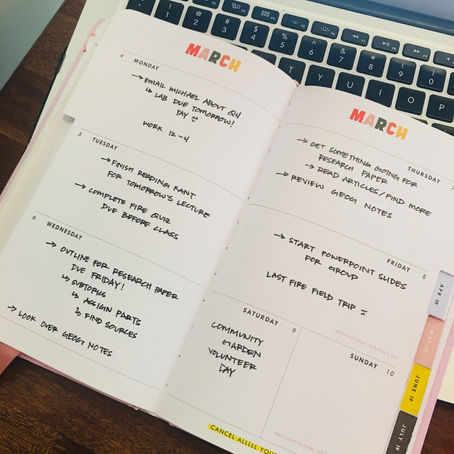 MARCH
4 MONDAY
→ EMAIL MICHAEL ABOUT Q4
↳ LAB DUE TOMORROW!
YAY :)
WORK 12-4
5 TUESDAY
→ FINISH READING KANT
FOR TOMORROW'S LECTURE
→ COMPLETE FIRE QUIZ
DUE BEFORE CLASS
6 WEDNESDAY
→ OUTLINE FOR RESEARCH PAPER
DUE FRIDAY!
↳ SUBTOPICS
↳ ASSIGN PARTS
↳ FIND SOURCES
→ LOOK OVER GEOG NOTES
MARCH
THURSDAY 7
→ GET SOMETHING GOING FOR
RESEARCH PAPER
→ READ ARTICLES/FIND MORE
→ REVIEW GEOG NOTES
FRIDAY 8
→ START POWERPOINT SLIDES
FOR GROUP
LAST FIRE FIELD TRIP :(
INTERNATIONAL WOMEN'S DAY
SATURDAY 9
COMMUNITY
GARDEN
VOLUNTEER
DAY
SUNDAY 10
DAYLIGHT SAVING
CANCEL ALLLLL YOUR
APR 19
MAY 19
JUNE 19
JULY 19